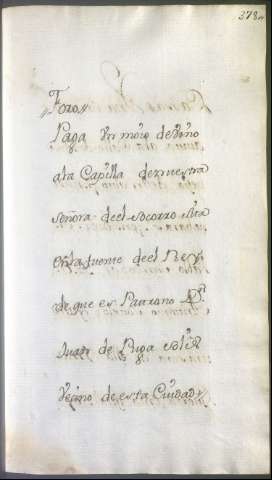 378
Foro
Paga Un moio de Vino
ala Capilla de nuestra
señora deel Socorro sita
en la fuente deel Rey
de que es Patrono Dn
Juan de Puga
Vecino de esta Ciudad